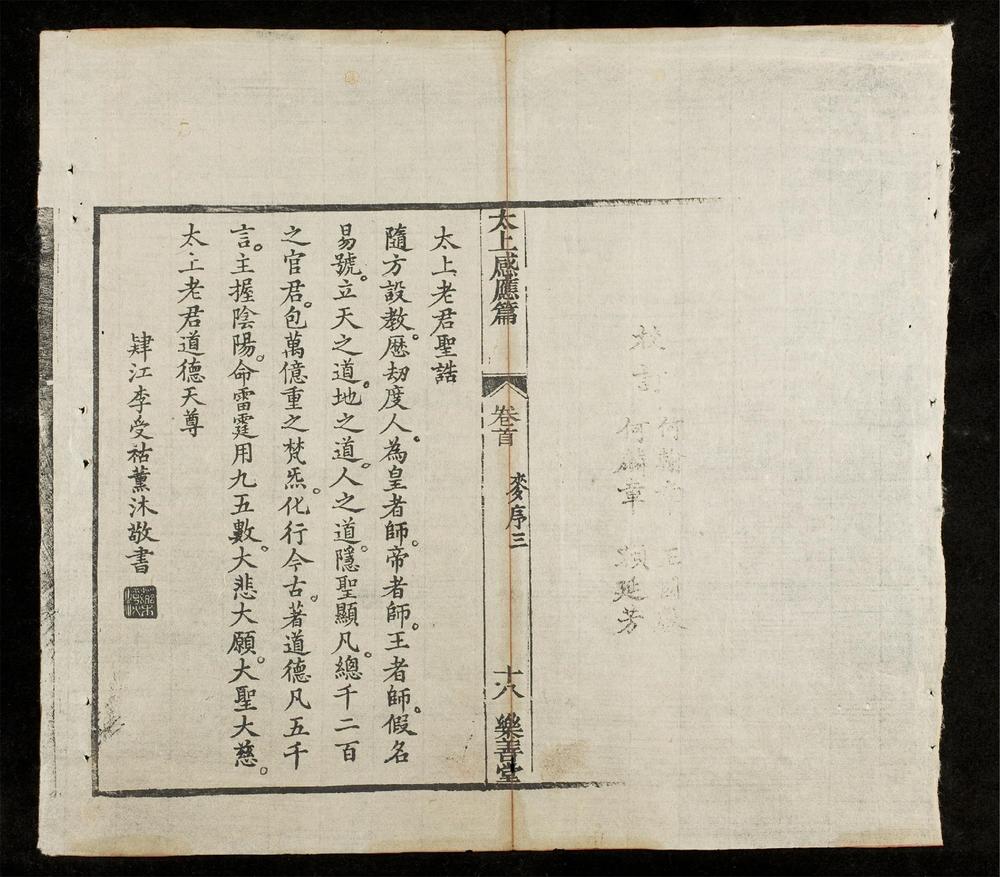 校
何
何 章
延芳
太上感應篇
卷首
麥序三
十八
樂善堂
太上老君聖誥
隨方設教。歷劫度人。為皇者師。帝者師。王者師。假名
易號。立天之道。地之道。人之道。隱聖顯凡。總千二百
之官君。包萬億重之梵炁。化行今古。著道德凡五千
言。主握陰陽。命雷霆用九五數。大悲大願。大聖大慈。
太上老君道德天尊
肄江李受祜薰沐敬書